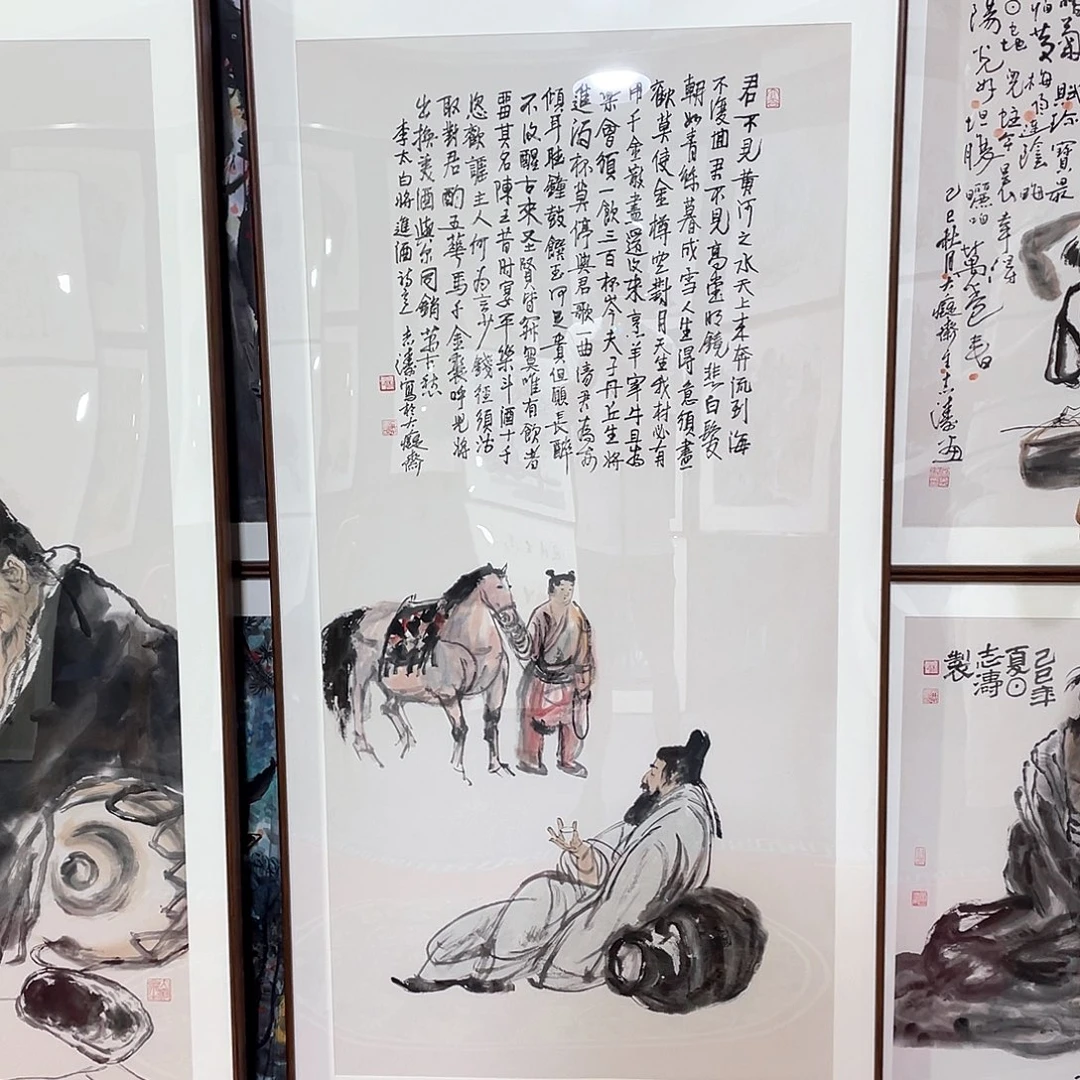 君不見黄河之水天上来奔流到海
不復回君不見高堂明鏡悲白髮
朝如青絲暮成雪人生得意須盡
歡莫使金樽空對月天生我材必有
用千金散盡還復来烹羊宰牛且為
樂會須一飲三百杯岑夫子丹丘生將
進酒杯莫停與君歌一曲請君為我
傾耳聽鐘鼓饌玉何足貴但願長醉
不復醒古来圣賢皆寂寞唯有飲者
留其名陳王昔时宴平樂斗酒十千
恣歡謔主人何为言少錢徑須沽
取對君酌五華馬千金裘呼児將
出換美酒與尔同銷萬古愁
李太白將進酒詩意 志濤寫於大癡齋
陽光好坦腹曬
萬卷書
乙巳年
夏日
志濤
製